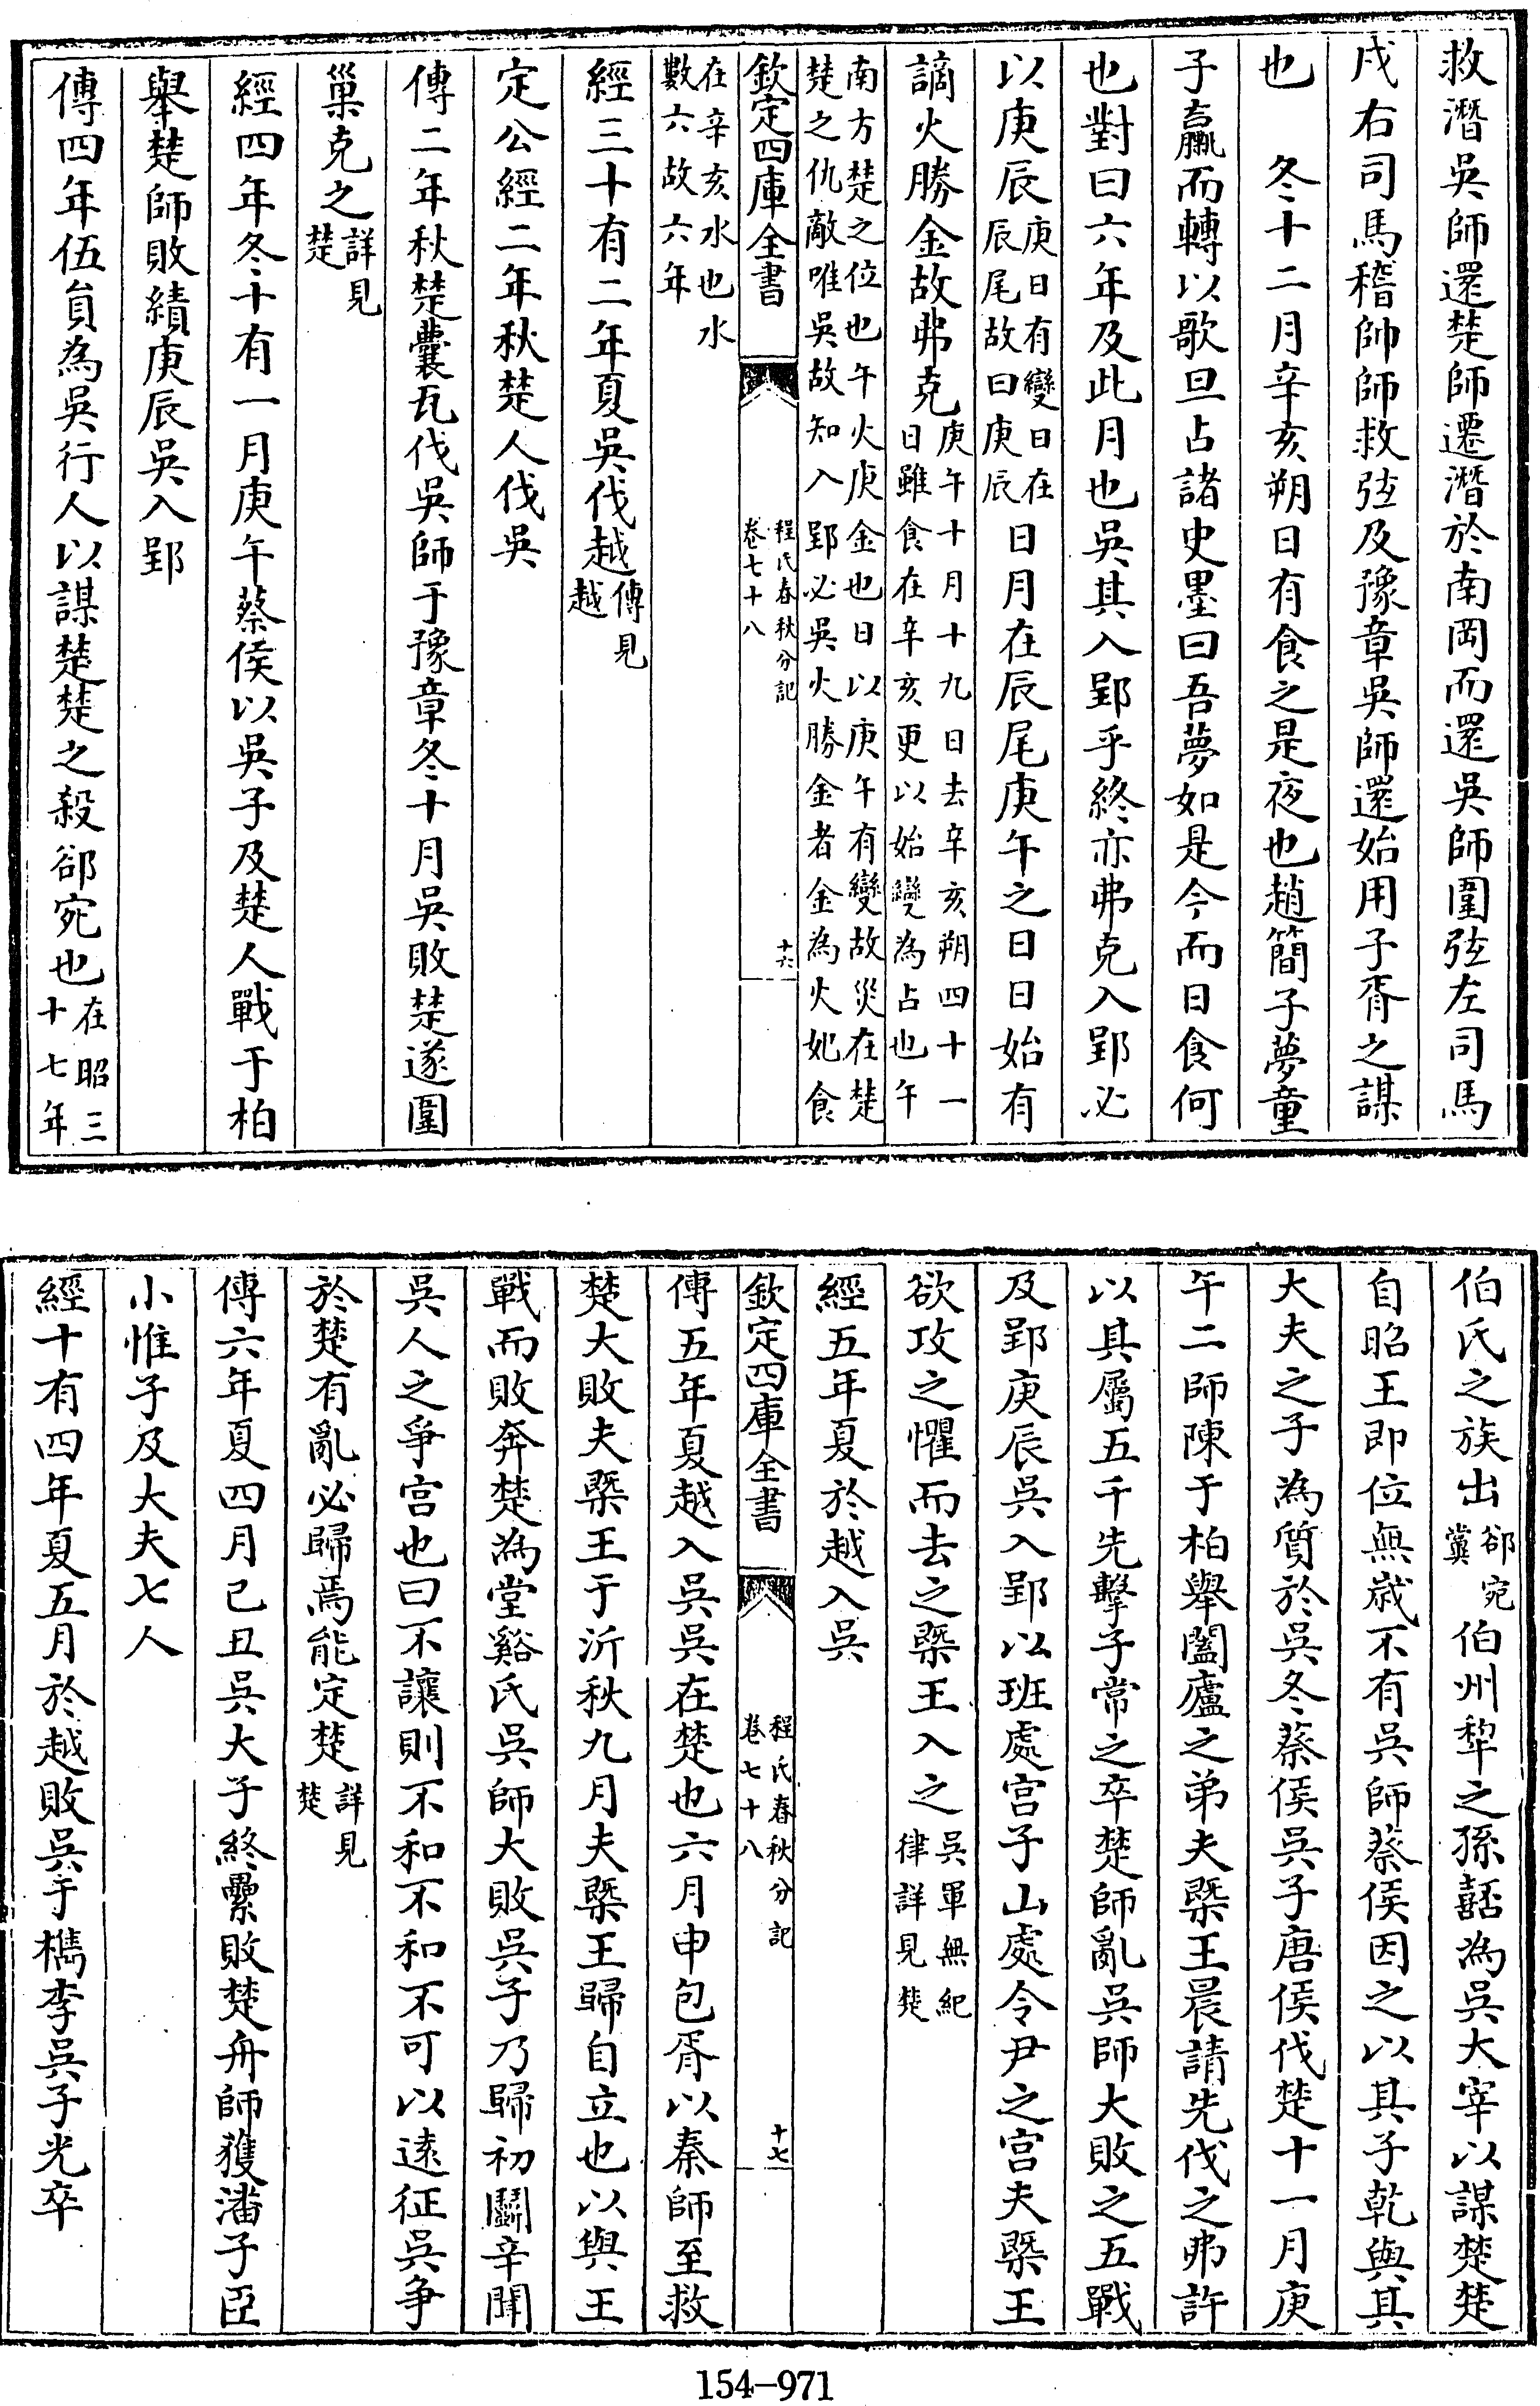 救潛吳師還楚師遷潛於南岡而還吳師圍弦左司馬
戌右司馬稽帥師救弦及豫章吳師還始用子胥之謀
也　冬十二月辛亥朔日有食之是夜也趙簡子夢童
子臝而轉以歌旦占諸史墨曰吾夢如是今而日食何
也對曰六年及此月也吳其入郢乎終亦弗克入郢必
以庚辰庚日有變日在辰尾故曰庚辰日月在辰尾庚午之日日始有
謫火勝金故弗克庚午十月十九日去辛亥朔四十一日雖食在辛亥更以始變為占也午
南方楚之位也午火庚金也日以庚午有變故災在楚楚之仇敵唯吳故知入郢必吳火勝金者金為火妃食
欽定四庫全書　程氏春秋分記卷七十八　十六
在辛亥水也水數六故六年
經三十有二年夏吳伐越傳見越
定公經二年秋楚人伐吳
傳二年秋楚囊瓦伐吳師于豫章冬十月吳敗楚遂圍
巢克之詳見楚
經四年冬十有一月庚午蔡侯以吳子及楚人戰于柏
舉楚師敗績庚辰吳入郢
傳四年伍員為吳行人以謀楚楚之殺郤宛也在昭三十七年
伯氏之族出郤宛黨伯州犂之孫嚭為吳大宰以謀楚楚
自昭王即位無歲不有吳師蔡侯因之以其子乾與其
大夫之子為質於吳冬蔡侯吳子唐侯伐楚十一月庚
午二師陳于柏舉闔廬之弟夫槩王晨請先伐之弗許
以其屬五千先擊子常之卒楚師亂吳師大敗之五戰
及郢庚辰吳入郢以班處宫子山處令尹之宫夫槩王
欲攻之懼而去之槩王入之吳軍無紀律詳見楚
經五年夏於越入吳
欽定四庫全書　程氏春秋分記卷七十八　十七
傳五年夏越入吳吳在楚也六月申包胥以秦師至救
楚大敗夫槩王于沂秋九月夫槩王歸自立也以與王
戰而敗奔楚為堂谿氏吳師大敗吳子乃歸初鬭辛聞
吳人之爭宫也曰不讓則不和不和不可以遠征吳爭
於楚有亂必歸焉能定楚詳見楚
傳六年夏四月己丑吳大子終纍敗楚舟師獲潘子臣
小惟子及大夫七人
經十有四年夏五月於越敗吳于檇李吳子光卒
154-971